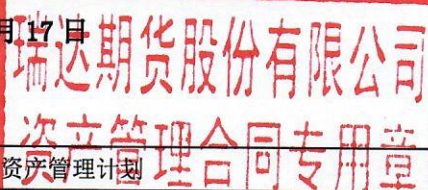 月17日
瑞达期货股份有限公司
资产管理合同专用章
资产管理计划